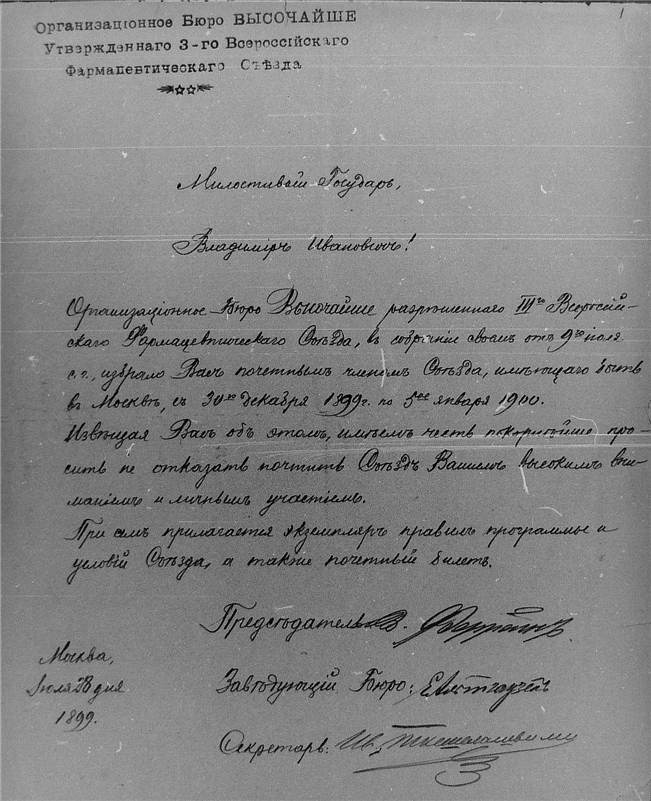 1
Организаціонное Бюро ВЫСОЧАЙШЕ
Утвержденнаго 3-го Всероссійскаго
Фармацевтическаго Съѣзда
Милостивый Государь,
Владиміръ Ивановичъ!
Организаціонное Бюро Высочайше разрѣшеннаго III го Всероссій-
скаго Фармацевтическаго Съѣзда, въ собраніи своемъ отъ 9 го іюля
с.г., избрало Васъ почетнымъ членомъ Съѣзда, имѣющаго быть
въ Москвѣ, съ 30 го декабря 1899 г. по 5 ое января 1900.
Извѣщая Васъ объ этомъ, имѣемъ честь покорнѣйше про-
сить не отказать почтить Съѣздъ Вашимъ высокимъ вни-
маніемъ и личнымъ участіемъ.
При семъ прилагается экземпляръ правилъ программы и
условій Съѣзда, а также почетный билетъ.
Предсѣдатель В. Феррейнъ
Москва,
Іюля 28 дня
1899.
Завѣдующій Бюро:
Секретарь: Ив.